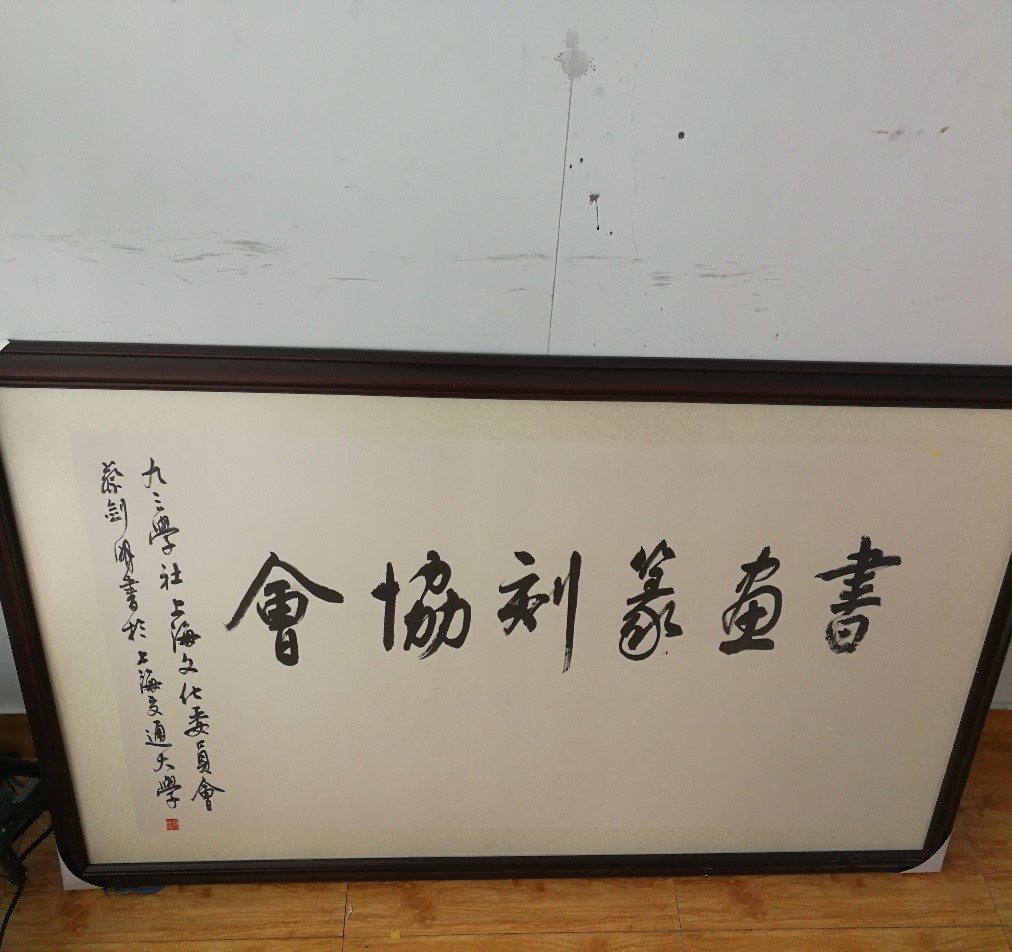 書畫篆刻協會
九三學社上海文化委員會
蔡剑明書於上海交通大學